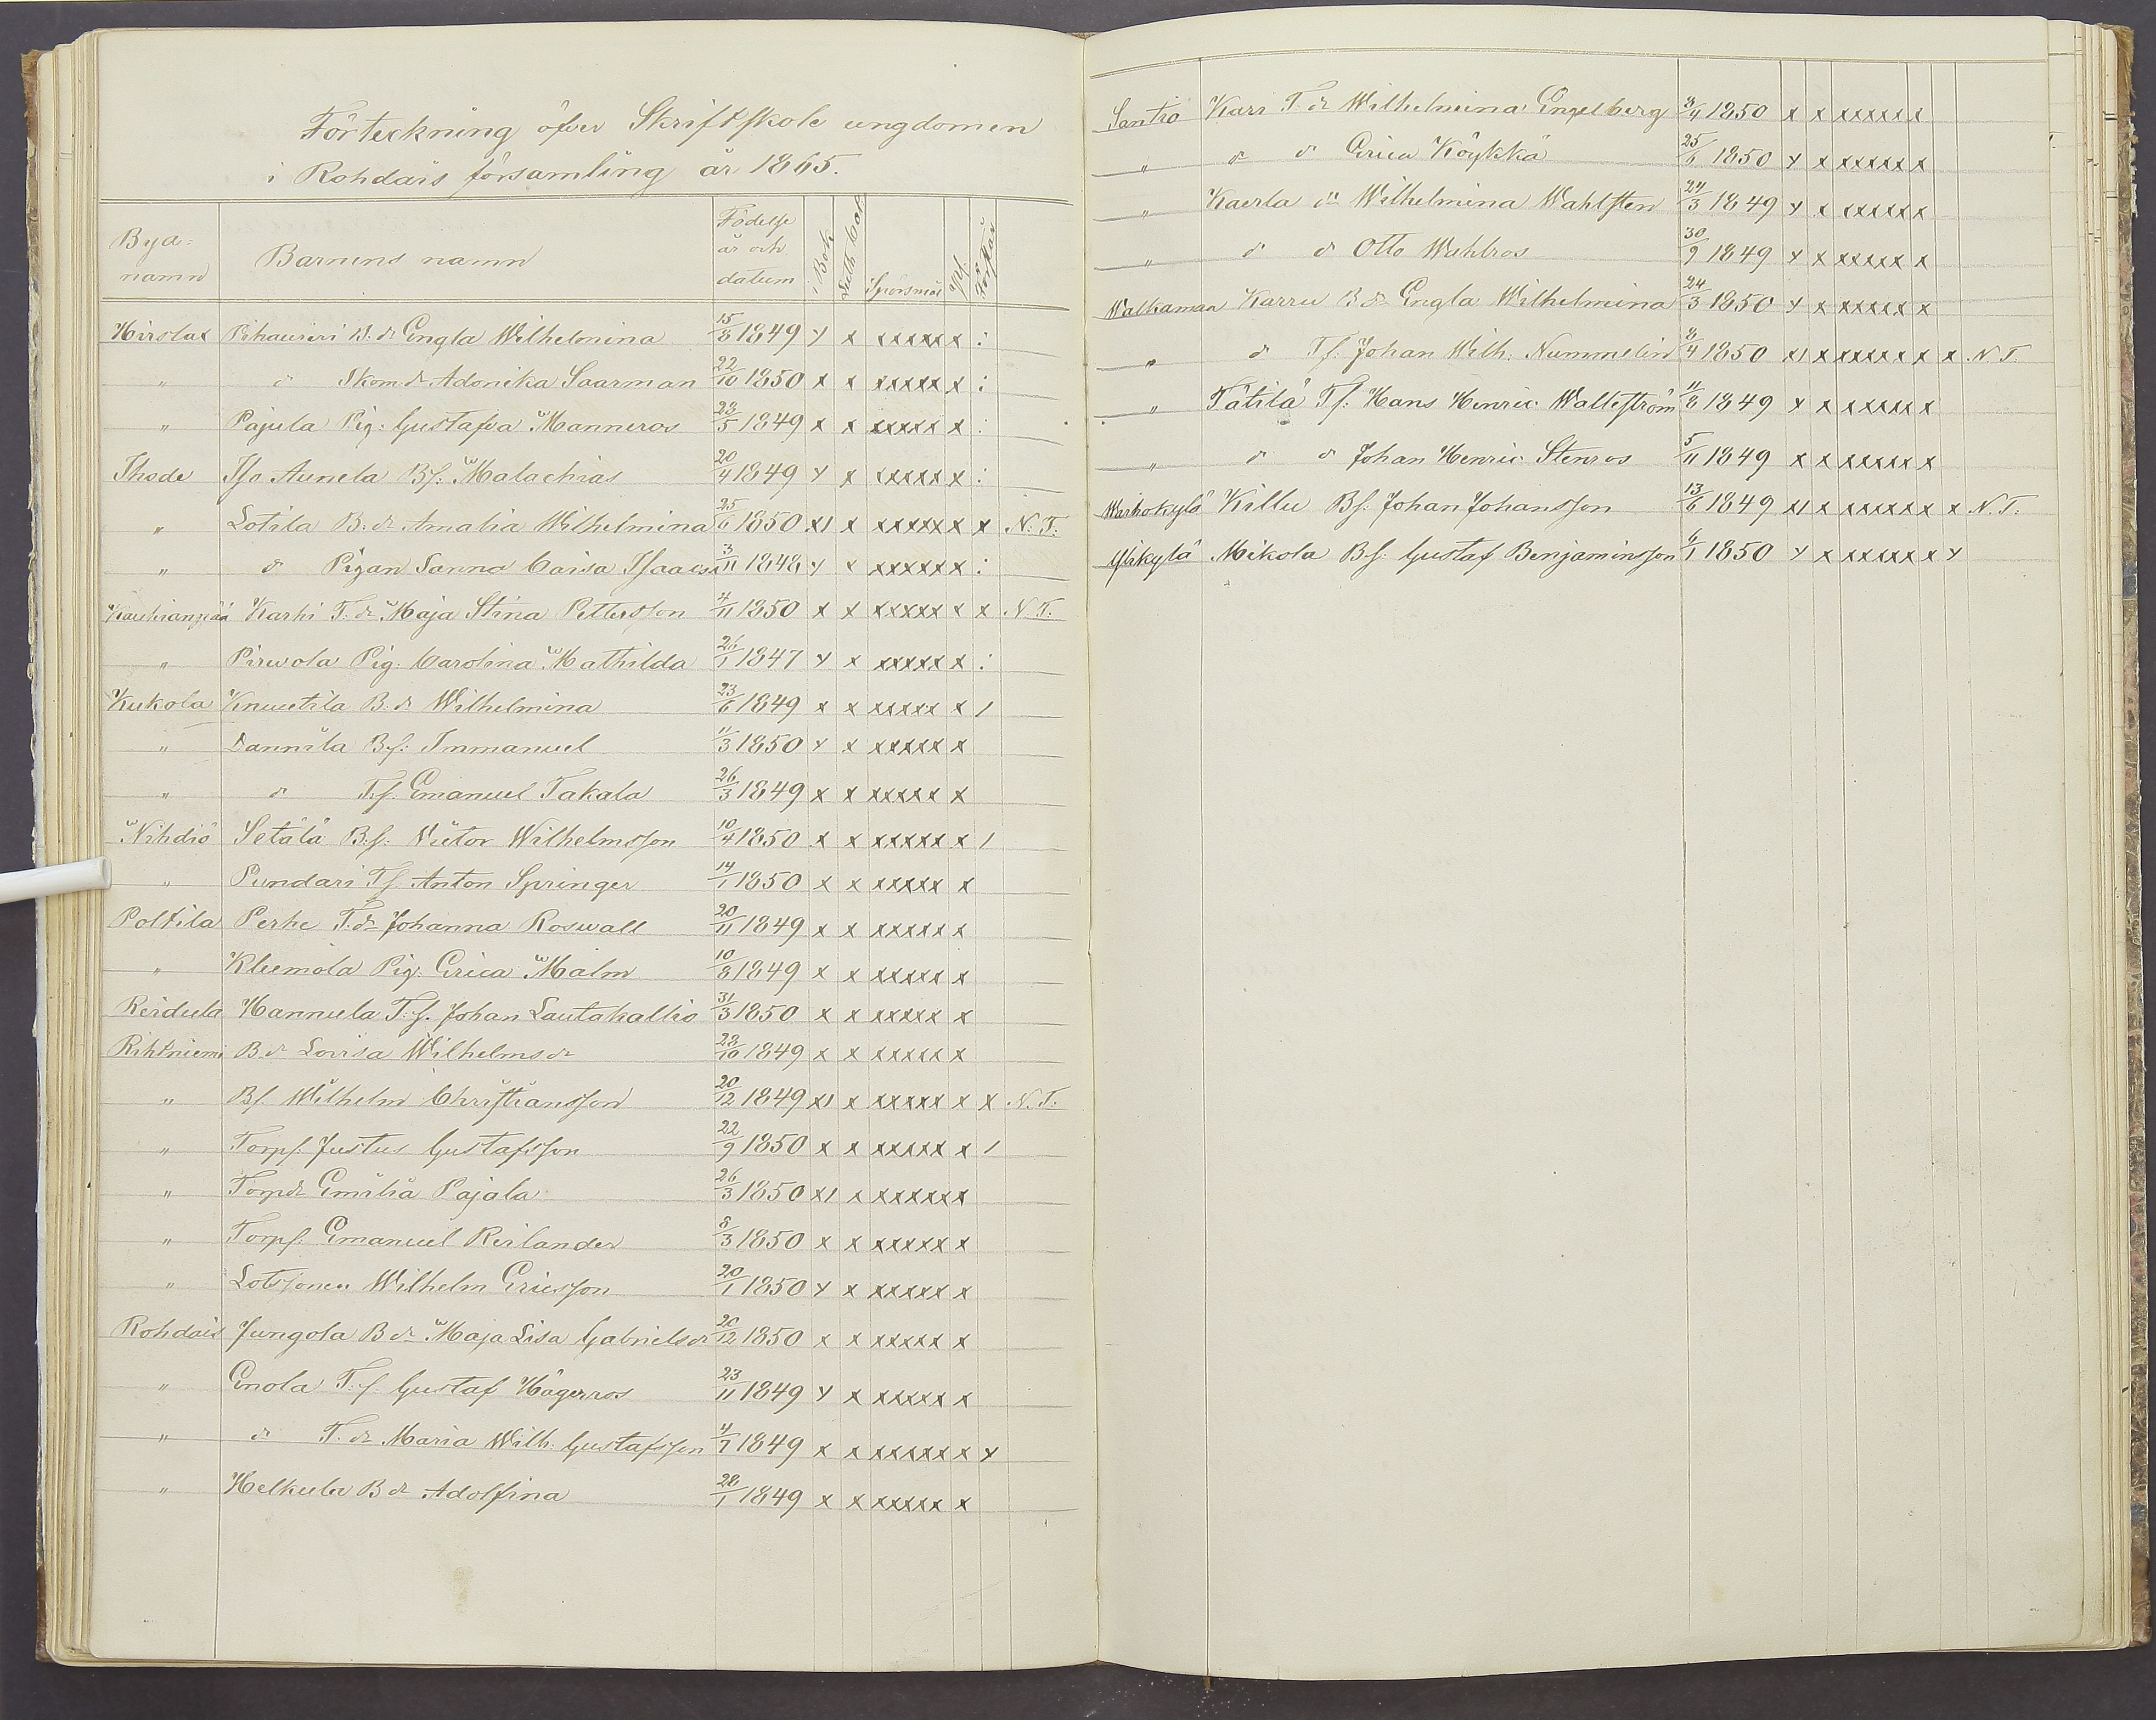 Förteckning öfver Skriftskole ungdomen
i Rohdais församling år 1865.
Bya= namn Barnens namn Födelse år och datum i Bok Luth Cat. Spörsmål Förstår
Hirslax Pihaureri B. dr Engla Wilhelmina 15/8 1849 x x xxxxx x :
" dr Skom. dr Adonika Saarman 22/10 1850 x x xxxxx x :
" Pajula Pig: Gustafva Manneros 23/5 1849 x x xxxxx x :
Ihode Iso Aunela Bs: Malachias 20/4 1849 x x xxxxx x :
" Lotila B. dr Amalia Wilhelmina 25/6 1850 x1 x xxxxx x x N. T.
" dr Pigan Sanna Caisa Isaacs 3/11 1848 x x xxxxx x :
Kauhianpää Karhi T. dr Maja Stina Pettersson 4/11 1850 x x xxxxx x x N. T.
" Pirwola Pig: Carolina Mathilda 26/1 1847 x x xxxxx x :
Kukola Knuutila B. dr Wilhelmina 23/6 1849 x x xxxxx x /
" Dannila Bs: Immanuel 11/3 1850 x x xxxxx x
" dr T.s. Emanuel Takala 26/3 1849 x x xxxxx x
Nihdiö Setälä B.s: Victor Wilhelmsson 10/4 1850 x x xxxxx x /
" Pundari Ts Anton Springer 14/1 1850 x x xxxxx x
Poltila Perhe T. dr Johanna Roswall 20/11 1849 x x xxxxx x
" Kleemola Pig: Erica Malm 10/8 1849 x x xxxxx x
Reidula Hannula T.s. Johan Lautakallio 31/3 1850 x x xxxxx x
Rihtniemi B. dr Lovisa Wilhelmsdr 28/10 1849 x x xxxxx x
" Bs. Wilhelm Christiansson 20/12 1849 x1 x xxxxx x x N. T.
" Torps. Justus Gustafsson 22/9 1850 x x xxxxx x /
" Torpdr Emilia Pajala 26/3 1850 x1 x xxxxx x
" Torps. Emanuel Reilander 8/3 1850 x x xxxxx x
" Lotssonen Wilhelm Ericsson 20/1 1850 x x xxxxx x
Rohdais Jungola B dr Maja Lisa Gabrielsdr 20/12 1850 x x xxxxx x
" Enola T.s. Gustaf Hägerros 23/11 1849 x x xxxxx x
" dr T. dr Maria Wilh. Gustafsson 4/7 1849 x x xxxxx x x
" Helkula B dr Adolfina 28/1 1849 x x xxxxx x
Santio Kari T. dr Wilhelmina Engelberg 3/4 1850 x x xxxxx x
" dr dr Erica Köykkä 25/6 1850 x x xxxxx x
" Kaerla dr Wilhelmina Wahlsten 24/3 1849 x x xxxxx x
" dr dr Otto Wahlros 30/9 1849 x x xxxxx x
Walkamaa Karru B dr Engla Wilhelmina 24/3 1850 x x xxxxx x
" dr T.s. Johan Wilh. Nummelin 8/4 1850 x1 x xxxxx x x N. T.
" Tätilä T.s: Hans Henric Wallström 11/8 1849 x x xxxxx x
" dr dr Johan Henric Stenros 5/11 1849 x x xxxxx x
Warhokylä Killu Bs. Johan Johansson 13/6 1849 x1 x xxxxx x x N. T.
Ylikylä Mikola Bs. Gustaf Benjaminsson 6/1 1850 x x xxxxx x x